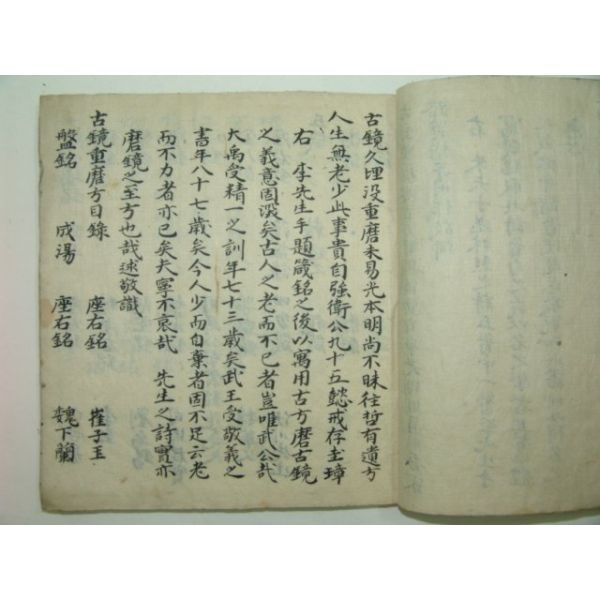 古鏡久埋没重磨未易光本明尚不昧往哲有遺方
人生無老少此事貴自強衛公九十五懿戒存圭璋
右 李先生手題箴銘之後以寓用古方磨古鏡
之義意固深矣古人之老而不已者豈唯武公哉
大禹受精一之訓年七十三歲矣武王受敬義之
書年八十七歲矣今人少而自棄者固不足云老
而不力者亦已矣夫寧不哀哉 先生之詩實亦
磨鏡之至方也哉逑敬識
古鏡重磨方目錄
盤銘 成湯 座右銘 崔子玉
座右銘 魏下蘭